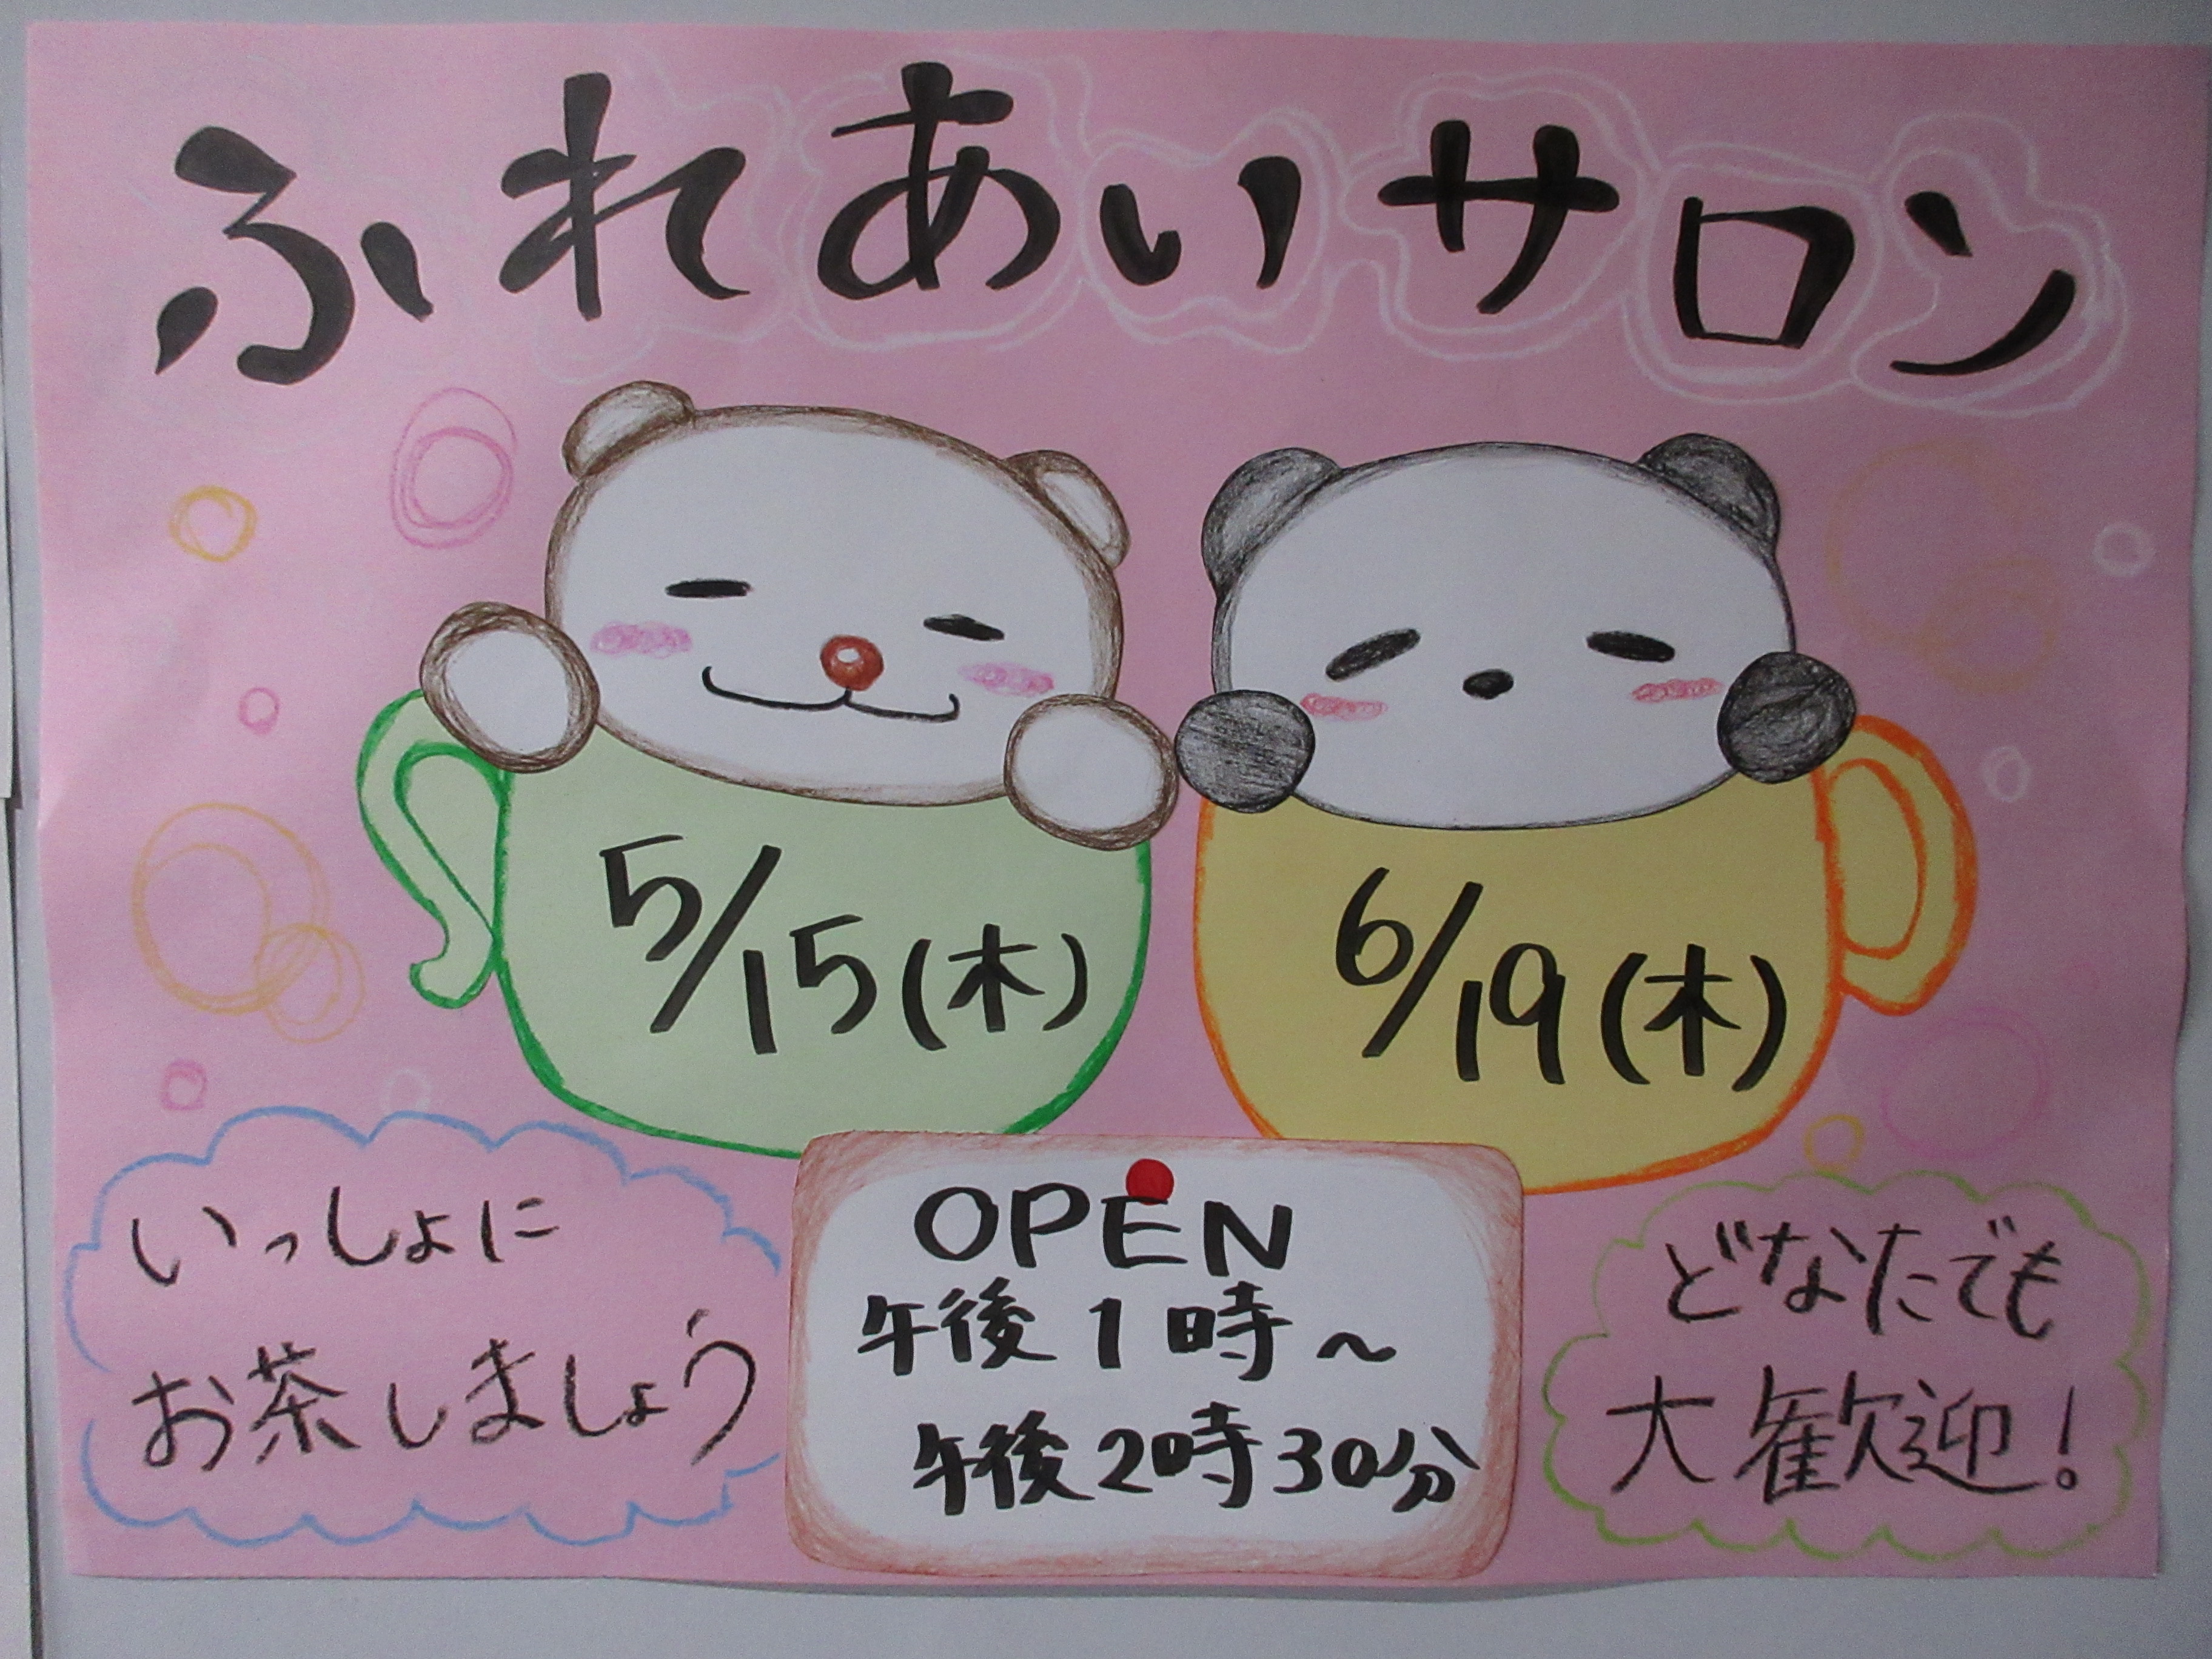 ふれあいサロン
5/15(木)
6/19(木)
いっしょに
お茶しましょう
OPEN
午後1時～
午後2時30分
どなたでも
大歓迎!